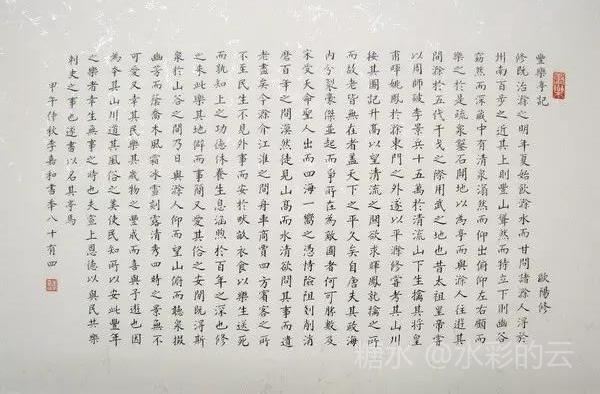 豐樂亭記
歐陽修
修既治滁之明年夏始飲滁水而甘問諸滁人得於
州南百步之近其上則豐山聳然而特立下則幽谷
窈然而深藏中有清泉滃然而仰出俯仰左右顧而
樂之於是疏泉鑿石闢地以為亭而與滁人往遊其
間滁於五代干戈之際用武之地也昔太祖皇帝嘗
以周師破李景兵十五萬於清流山下生擒其將皇
甫暉姚鳳於滁東門之外遂以平滁修嘗考其山川
按其圖記升高以望清流之關欲求暉鳳就擒之所
而故老皆無在者蓋天下之平久矣自唐失其政海
內分裂豪傑並起而爭所在為敵國者何可勝數及
宋受天命聖人出而四海一嚮之憑恃險阻剗削消
磨百年之間漠然徒見山高而水清欲問其事而遺
老盡矣今滁介江淮之間舟車商賈四方賓客之所
不至民生不見外事而安於畎畝衣食以樂生送死
而孰知上之功德休養生息涵煦於百年之深也修
之來此樂其地僻而事簡又愛其俗之安閒既得斯
泉於山谷之間乃日與滁人仰而望山俯而聽泉掇
幽芳而蔭喬木風霜冰雪刻露清秀四時之景無不
可愛又幸其民樂其歲物之豐成而喜與予遊也因
為本其山川道其風俗之美使民知所以安此豐年
之樂者幸生無事之時也夫宣上恩德以與民共樂
刺史之事也遂書以名其亭焉
甲午仲秋李嘉和書季八十有四
糖水 @水彩的云